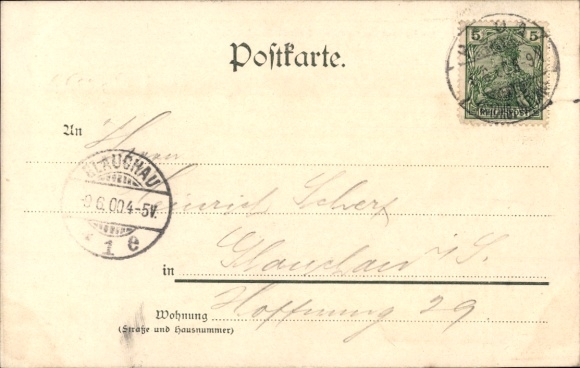 Postkarte.
5 5
An Herrn
Heinrich Scherf
GLAUCHAU
9 6.00 4-5V.
* 1 e
in Glauchau i/S.
Wohnung Hoffnung 29.
(Straße und Hausnummer)